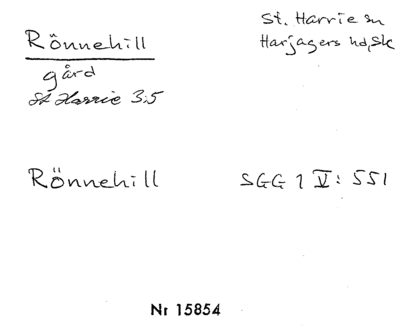 Rönnehill
St. Harrie sn
Harjagers hd, Sk
gård
St Harrie 3:5
Rönnehill
SGG 1 V: 551
Nr 15854